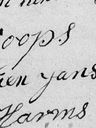 oops
en Jans
Harms